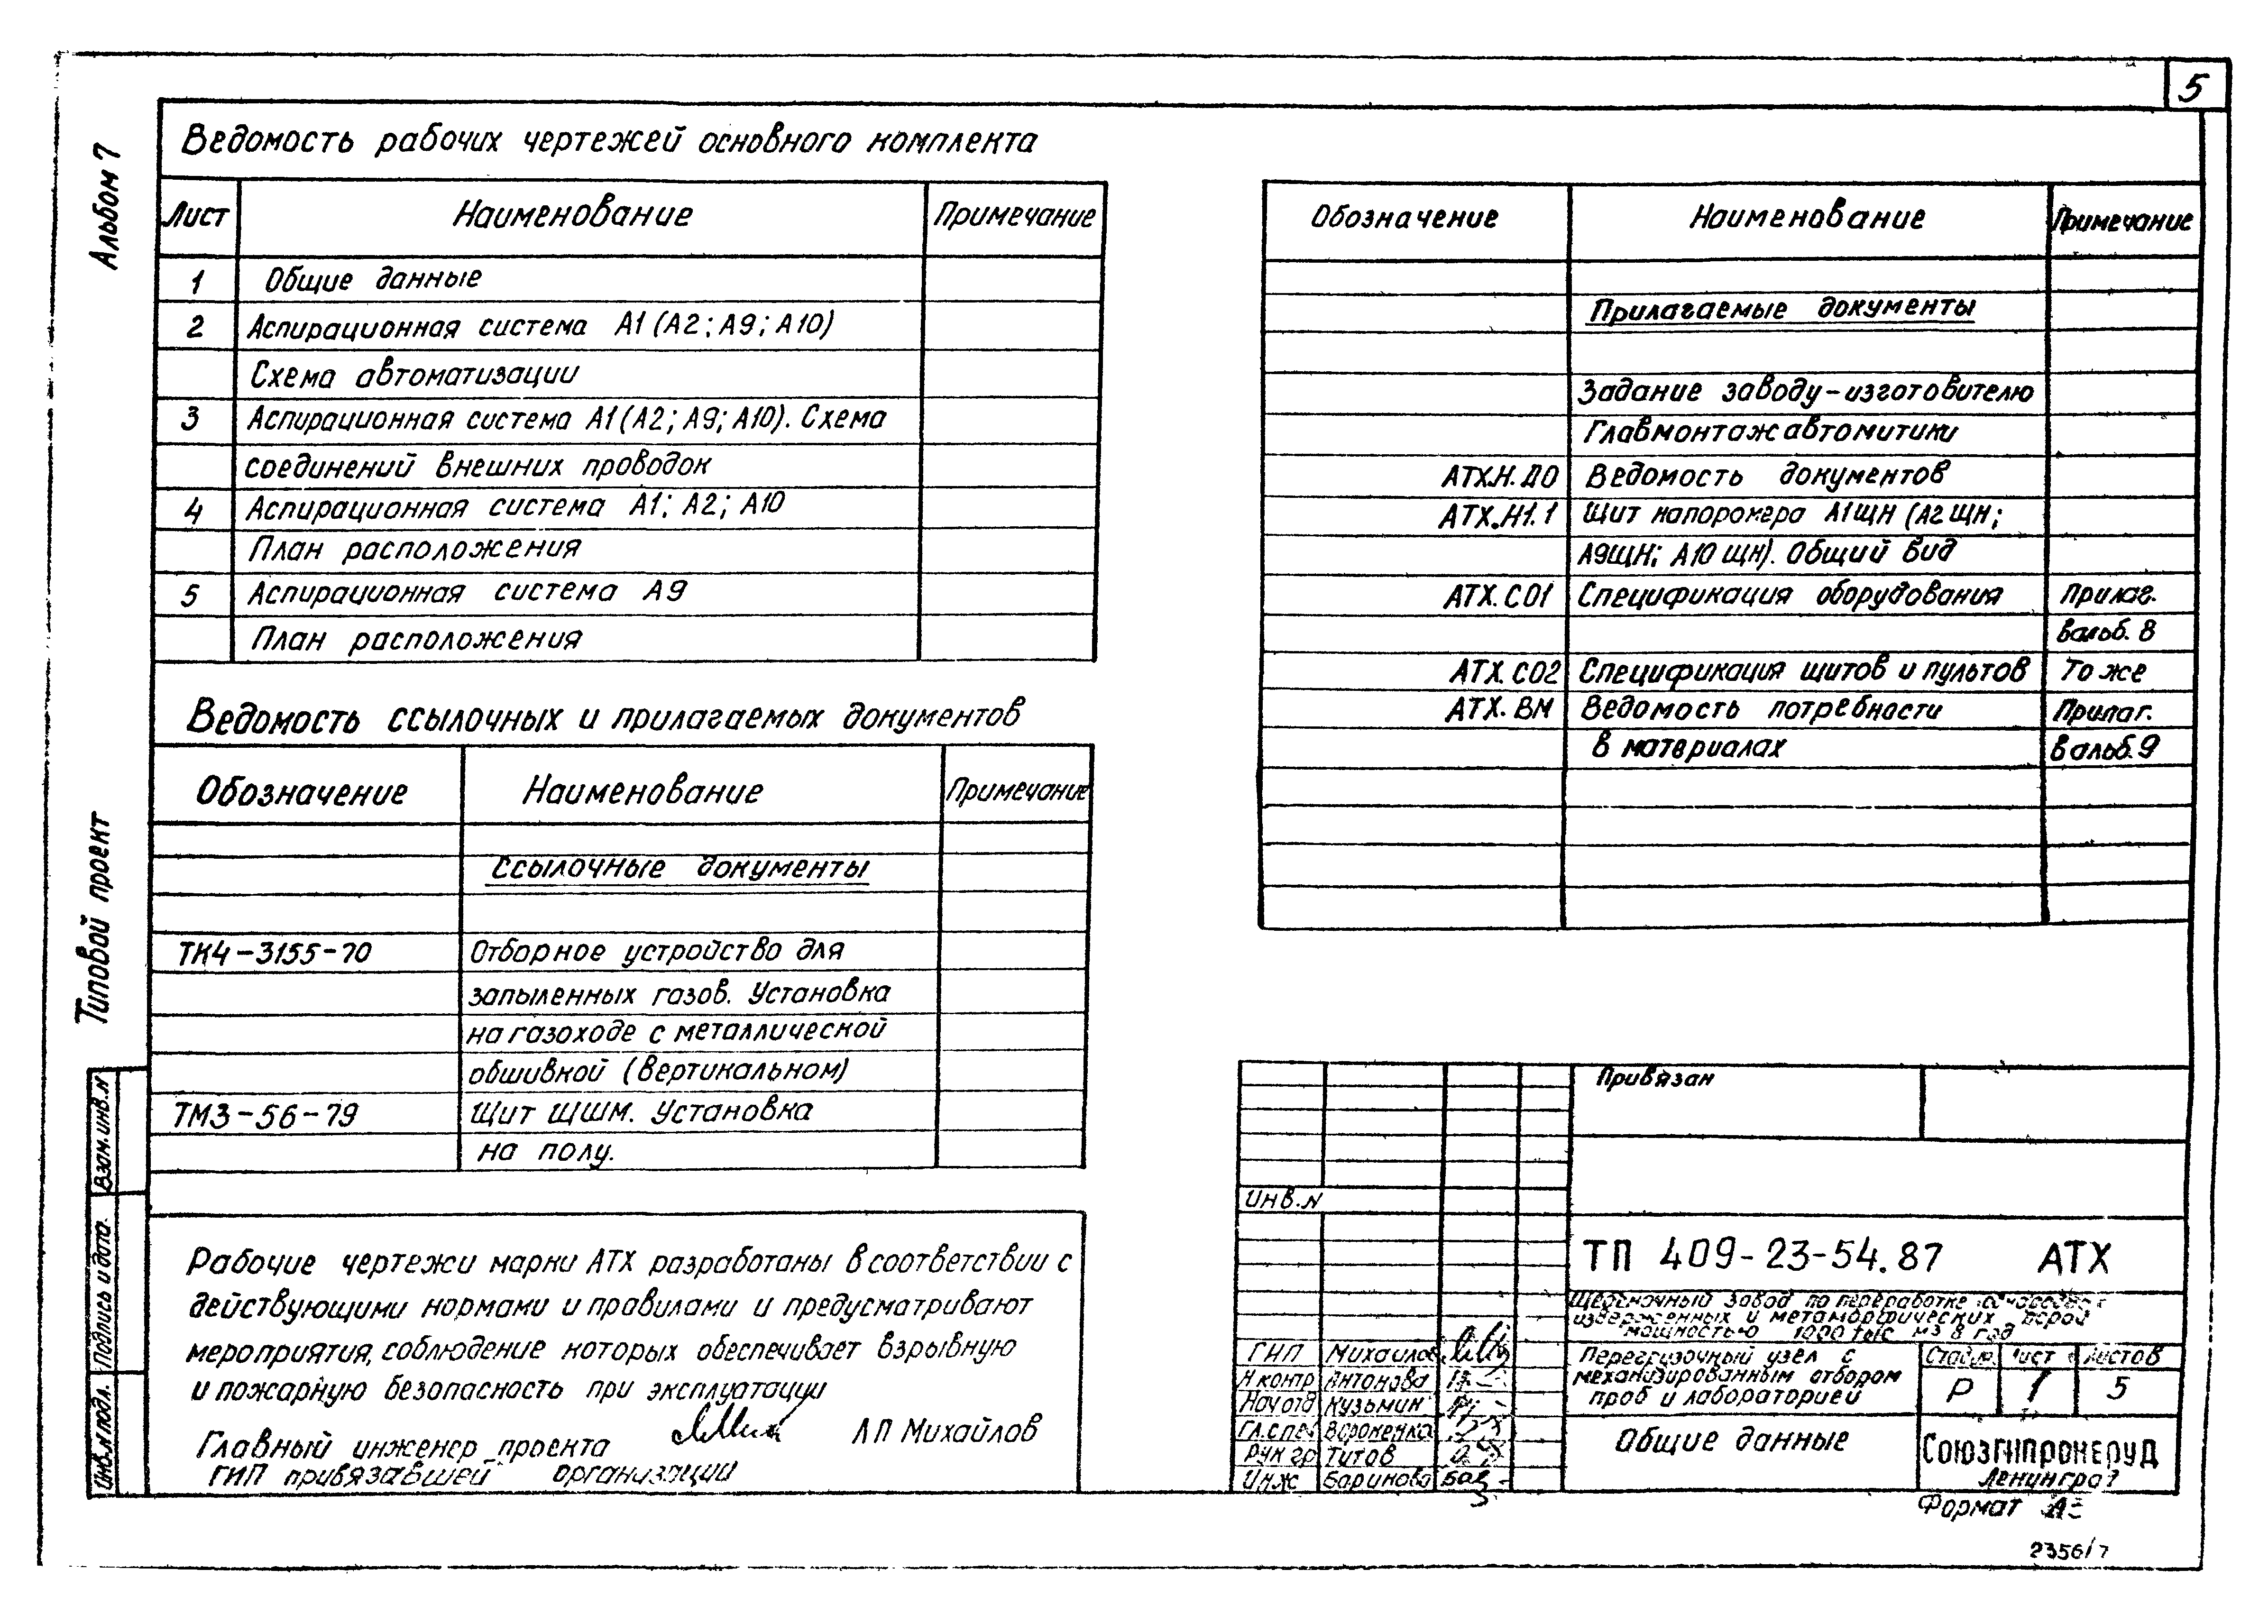 5
Альбом 7
Ведомость рабочих чертежей основного комплекта
Лист Наименование Примечание
1 Общие данные
2 Аспирационная система А1 (А2; А9; А10)
Схема автоматизации
3 Аспирационная система А1 (А2; А9; А10). Схема
соединений внешних проводок
4 Аспирационная система А1; А2; А10
План расположения
5 Аспирационная система А9
План расположения
Ведомость ссылочных и прилагаемых документов
Обозначение Наименование Примечание
Ссылочные документы
ТК4-3155-70 Отборное устройство для
запыленных газов. Установка
на газоходе с металлической
обшивкой (вертикальном)
ТМ3-56-79 Щит ЩШМ. Установка
на полу.
Рабочие чертежи марки АТХ разработаны в соответствии с
действующими нормами и правилами и предусматривают
мероприятия, соблюдение которых обеспечивает взрывную
и пожарную безопасность при эксплуатации
Главный инженер проекта АП Михайлов
ГИП привязавшей организации
Обозначение Наименование Примечание
Прилагаемые документы
Задание заводу-изготовителю
Главмонтажавтомитики
АТХ.Н.ДО Ведомость документов
АТХ.Н1.1 Щит напоромера А1ЩН (А2ЩН;
А9ЩН; А10 ЩН). Общий вид
АТХ.СО1 Спецификация оборудования Прилаг.
в альб. 8
АТХ.СО2 Спецификация щитов и пультов То же
АТХ.ВМ Ведомость потребности Прилаг.
в материалах в альб. 9
Привязан
Инв.N
ТП 409-23-54.87 АТХ
Щебеночный завод по переработке
изверженных и метаморфических пород
мощностью 1000 тыс м3 в год
Перегрузочный узел с
механизированным отбором
проб и лабораторией
Стадия Лист Листов
Р 1 5
Общие данные
Союзгипронеруд
Ленинград
ГИП Михайлов
Н контр Антонова
Нач отд Кузьмин
Гл.спец Вороненко
Рук гр Титов
Инж Баринова
Формат А3
2356/7
Типовой проект
Взам.инв.N
Подпись и дата
Инв.N подл.